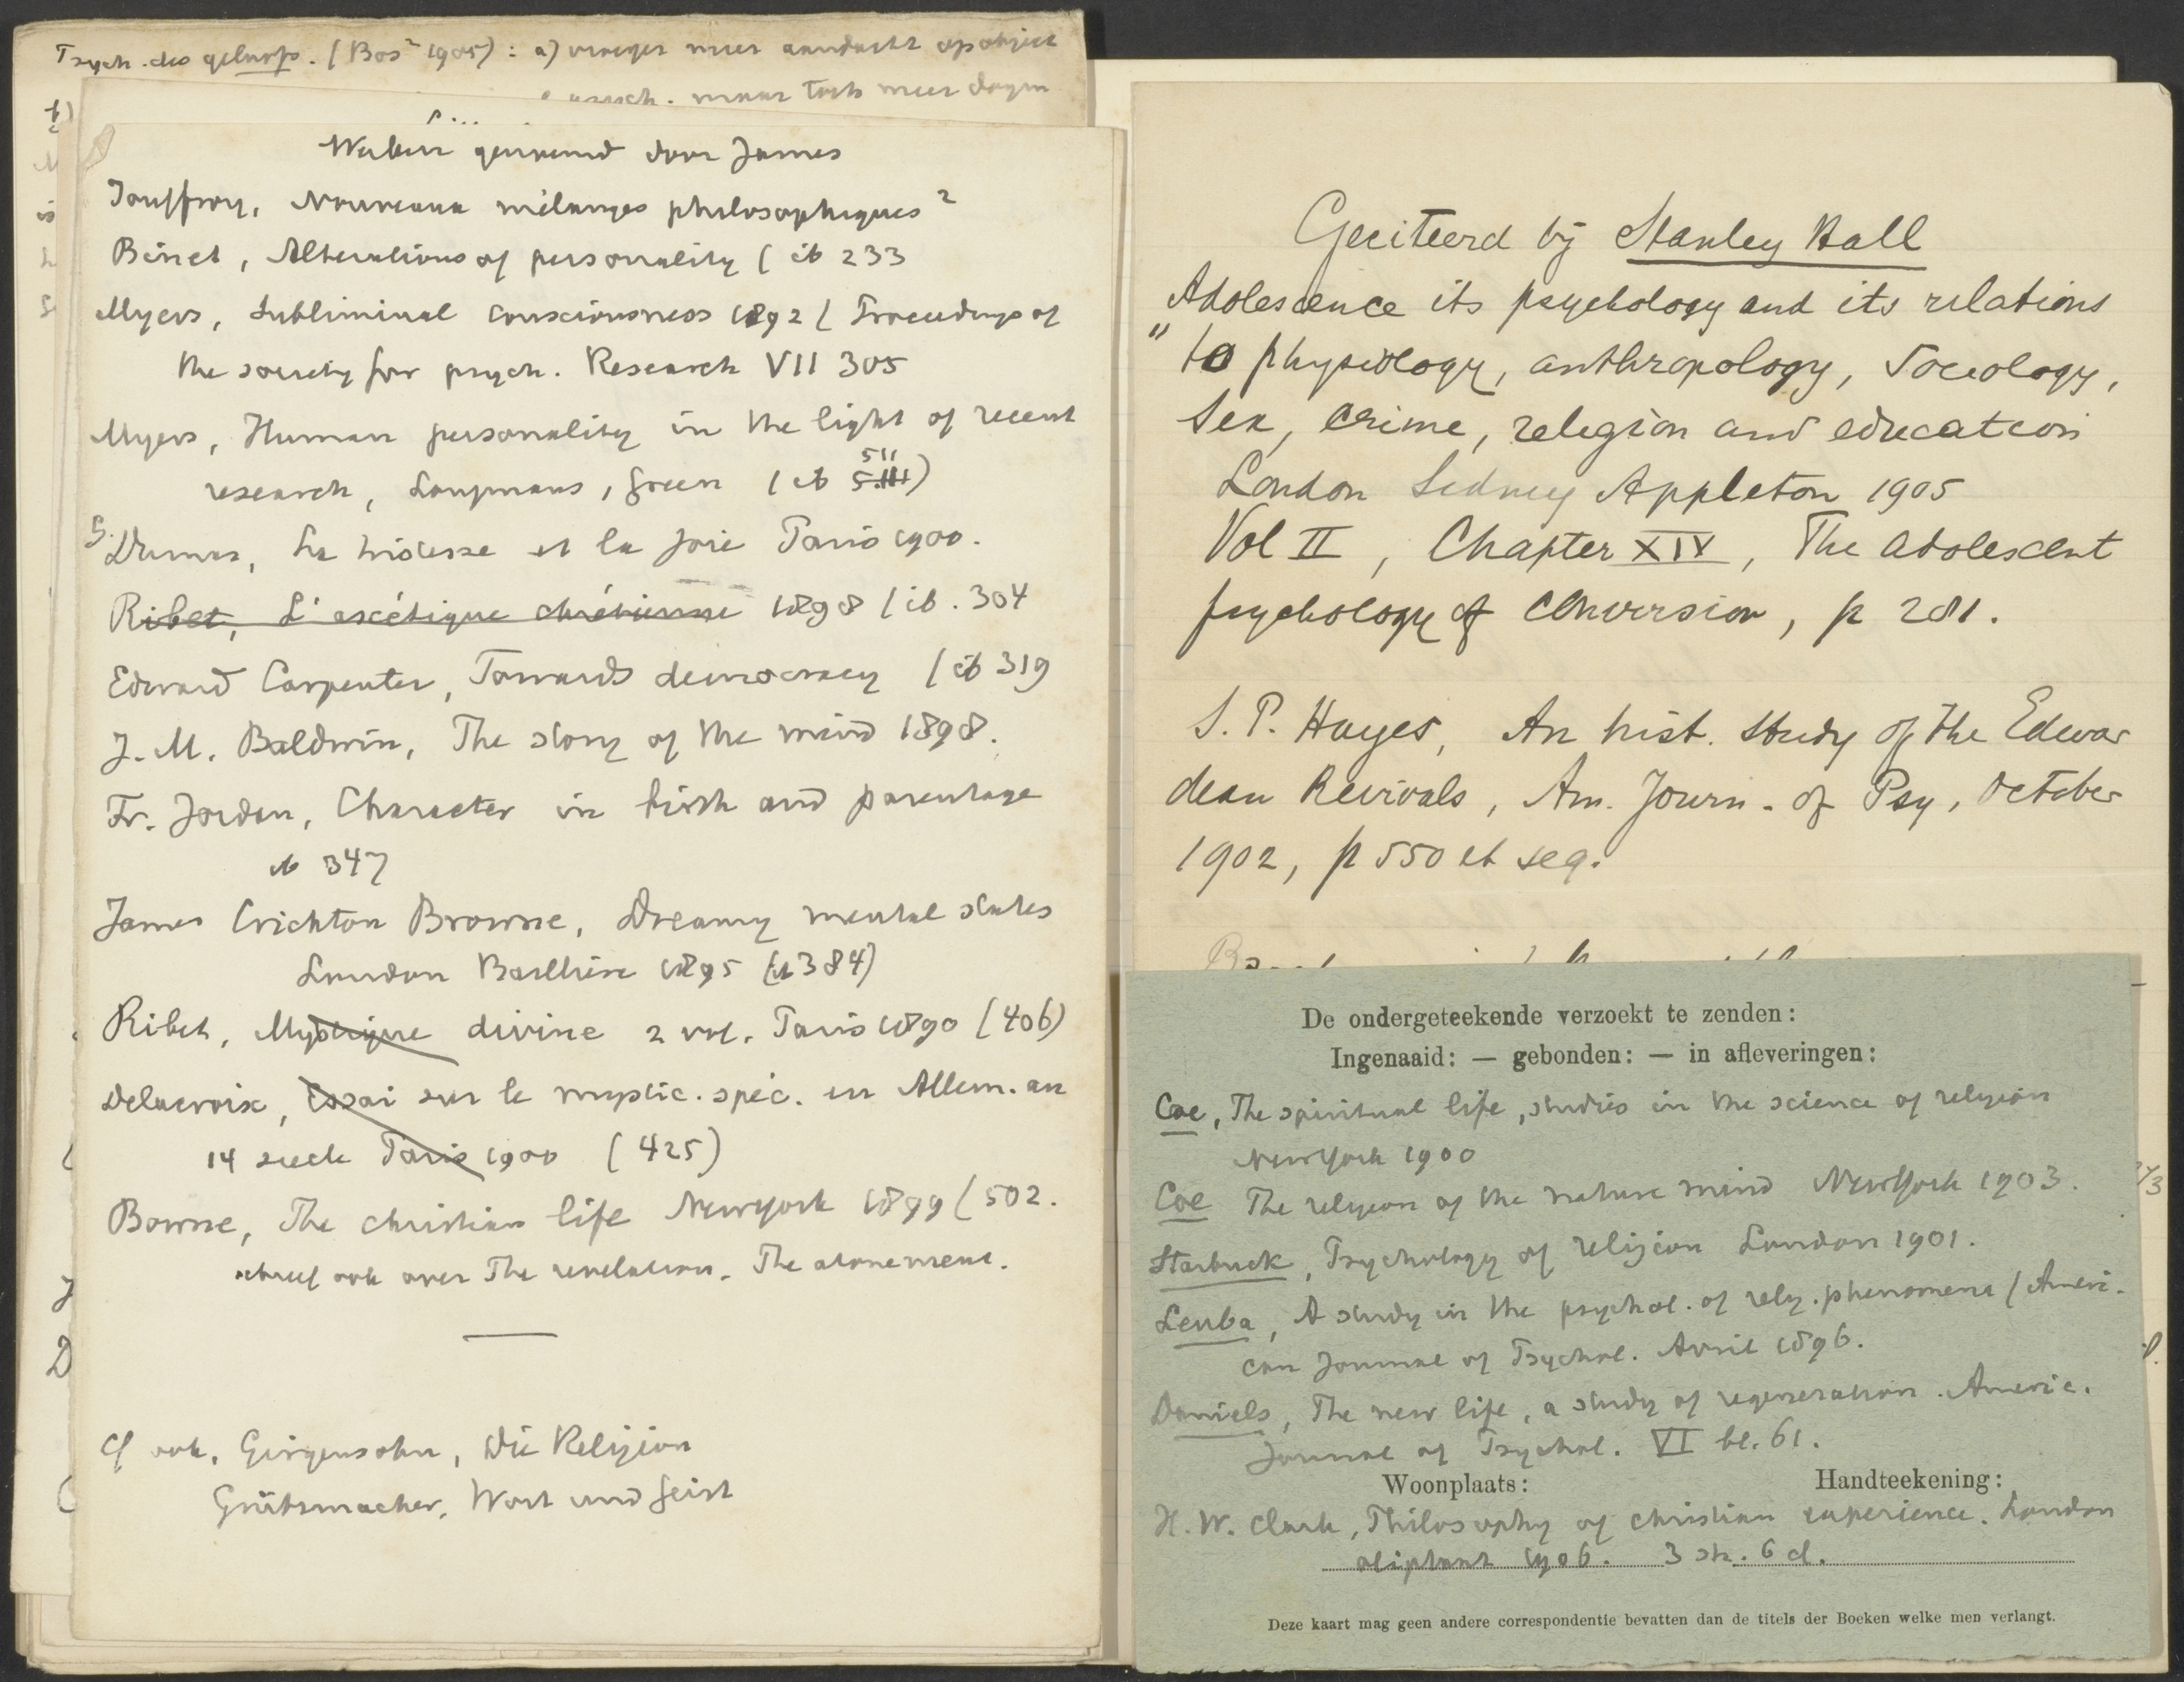 Psych. des geloofs. (Bos² 1905): a) vroeger meer aandacht op object
psych. maar toch meer dogm
b)
Werken genoemd door James
Jouffroy, Nouveaux mélanges philosophiques²
Binet, Alterations of personality ( ib 233
Myers, Subliminal consciousness 1892 ( Proceedings of
the society for psych. Research VII 305
Myers, Human personality in the light of recent
research, Longmans, Green ( ib 511)
G. Dumas, La tristesse et la joie Paris 1900.
Ribet, L'ascétique chrétienne 1898 ( ib. 304
Edward Carpenter, Towards democracy ( ib 319
J. M. Baldwin, The story of the mind 1898.
Fr. Jordan, Character in birth and parentage
ib 347
James Crichton Browne, Dreamy mental states
London Baillière 1895 (ib 384)
Ribet, Mystique divine 2 vol. Paris 1890 (406)
Delacroix, Essai sur le mystic. spéc. en Allem. au
14 siecle Paris 1900 (425)
Bowne, The christian life New York 1899 (502.
schreef ook over The revelation. The atonement.
Cf ook, Girgensohn, Die Religion
Grützmacher, Wort und Geist
Geciteerd bij Stanley Hall
Adolescence its psychology and its relations
" to physiology, anthropology, Sociology,
Sex, crime, religion and education
London Sidney Appleton 1905
Vol II, Chapter XIV, The adolescent
psychology of conversion, p 281.
S. P. Hayes, An hist. study of the Edwar
dean Revivals, Am. Journ. of Psy, October
1902, p 550 et seq.
De ondergeteekende verzoekt te zenden:
Ingenaaid: — gebonden: — in afleveringen:
Coe, The spiritual life, studies in the science of religion
New York 1900
Coe The religion of the mature mind New York 1903.
Starbuck, Psychology of religion London 1901.
Leuba, A study in the psychol. of relig. phenomena (Ameri-
can Journal of Psychol. April 1896.
Daniels, The new life, a study of regeneration. Americ.
Journal of Psychol. VI bl. 61.
Woonplaats: Handteekening:
H. W. Clark, Philosophy of christian experience. London
oliphant 1906. 3 sh. 6 d.
Deze kaart mag geen andere correspondentie bevatten dan de titels der Boeken welke men verlangt.